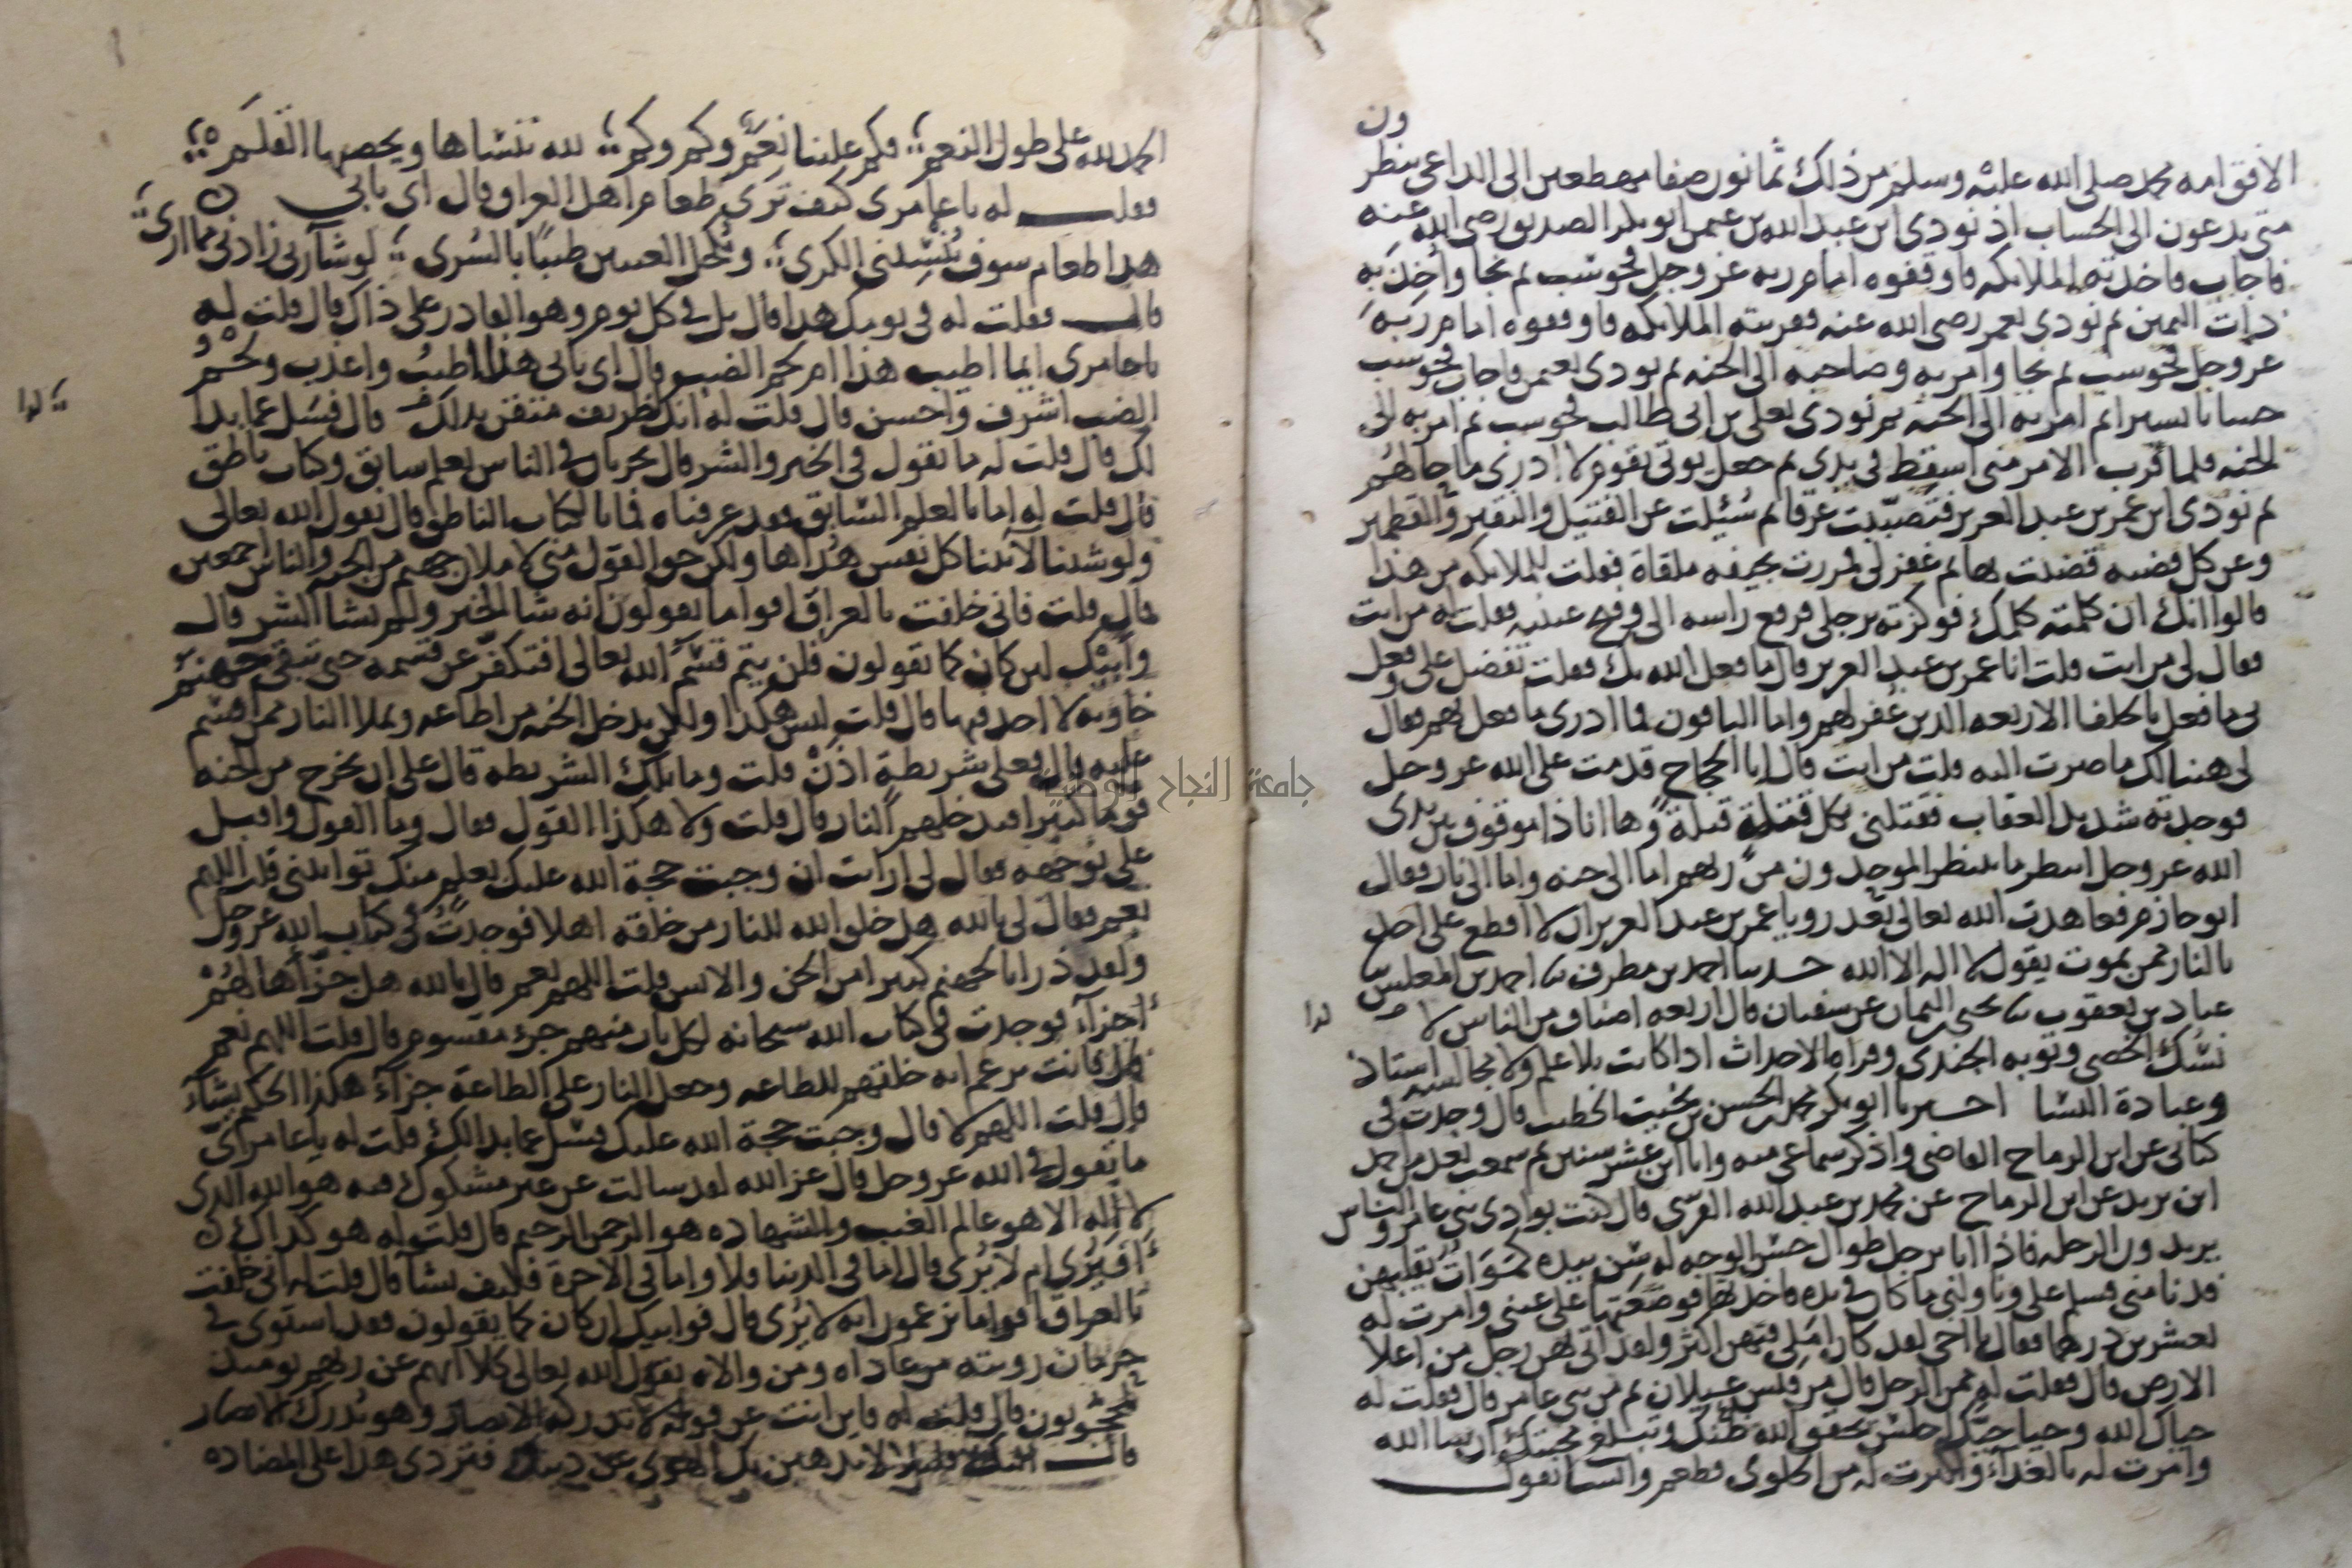 ون
الافق امة محمد صلى الله عليه وسلم من ذلك ثمانون صفا مهطعين الى الداعي ينظر
متى يدعون الى الحساب اذ نودي ابن عبد الله بن عثمن ابو بكر الصديق رضي الله عنه
فاجاب فاخذته الملائكة فاوقفوه امام ربه عز وجل فحوسب ثم نجا واخذ به
ذات اليمين ثم نودي بعمر رضي الله عنه فقربته الملائكة فاوقفوه امام ربه
عز وجل فحوسب ثم نجا وامر به وصاحبه الى الجنة ثم نودي بعثمن فاجاب فحوسب
حسابا يسيرا ثم امر به الى الجنة ثم نودي بعلي بن ابي طالب فحوسب ثم امر به الى
الجنة فلما قرب الامر مني اسقط في يدي ثم جعل يوتى بقوم لا ادري ما حالهم
ثم نودي ابن عمر بن عبد العزيز فتصببت عرقا ثم سئلت عن الفتيل والنقير والقطمير
وعن كل قضية قضيت بها ثم غفر لي فمررت بجيفة ملقاة فقلت للملائكة من هذا
قالوا انك ان كلمته كلمك فوكزته برجلي فرفع راسه الي وفتح عينيه فقلت له من انت
فقال لي من انت قلت انا عمر بن عبد العزيز قال ما فعل الله بك فقلت تفضل علي وفعل
بي ما فعل بالخلفا الاربعة الذين غفر لهم واما الباقون فما ادري ما فعل بهم فقال
لي هنيا لك ما صرت اليه قلت من انت قال انا الحجاج قدمت على الله عز وجل
فوجدته شديد العقاب فقتلني بكل قتلة قتلة وها انا ذا موقوف بين يدي
الله عز وجل انتظر ما ينتظر الموحدون من ربهم اما الى جنة واما الى نار فقال
ابو حازم فعاهدت الله تعالى بعد رويا عمر بن عبد العزيز ان لا اقطع على احد
بالنار ممن يموت يقول لا اله الا الله حدثنا احمد بن مطرف نا احمد بن المغلس نا
عباد بن يعقوب نا يحيى اليمان عن سفيان قال اربعة اصناف من الناس لا
لذا
نسك الخصي وتوبة الجندي وقراة الاحداث اذا كانت بلا علم ولا مجالسة استاذ
وعبادة النسا اخبرنا ابو بكر محمد بن الحسن بن بخيت الخطيب قال وجدت في
كتابي عن ابن الرماح القاضي واذكر سماعي منه وانا ابن عشر سنين ثم سمعت بعد من احمد
ابن يزيد عن ابن الرماح عن محمد بن عبد الله القرشي قال كنت بوادي بني عامر والناس
يريدون الرحلة فاذا انا برجل طوال حسن الوجه له سن بيده كسوات يقلبهن
فدنا مني فسلم علي وناولني ما كان في يده فاخذتها فوضعتها على عيني وامرت له
بعشرين درهما فقال يا اخي لقد كان املي فيهن اكثر ولقد اتى بهن رجل من اعلا
الارض قال فقلت له ممن الرجل قال من قيس عيلان ثم من بني عامر قال فقلت له
حياك الله وحيا حيك اجلس يحقق الله ظنك وتبلغ محبتك ان شا الله
وامرت له بالغدآء واكثرت له من الحلوى فطعم وانشا يقول
الحمد لله على طول النعم فكم علينا نعم وكم وكم لله ننساها ويحصيها القلم
فقلت له يا عامري كيف ترى طعام اهل العراق قال اي بابي
هذا طعام سوف ينسيني الكرى وتكحل العينين طيبا بالسرى لو شا ربي زادني مما ارى
قال فقلت له في يومك هذا قال بل في كل يوم وهو القادر على ذاك قال قلت له
يا عامري ايما اطيب هذا ام لحم الضب قال اي بابي هذا اطيب واعذب ولحم
الضب اشرف واحسن قال قلت له انك لظريف متفنن بذلك قال فسل عما بدا
لذا
لك قال قلت له ما تقول في الخير والشر قال يجريان في الناس بعلم سابق وكتاب ناطق
قال قلت له اما بالعلم السابق فقد عرفناه فما بالكتاب الناطق قال بقول الله تعالى
ولو شئنا لآتينا كل نفس هداها ولكن حق القول مني لاملان جهنم من الجنة والناس اجمعين
قال قلت فاني خلفت بالعراق اقواما يقولون انه شا الخير ولم يشا الشر قال
وابيك لين كان كما تقولون فلن يتم قسم الله تعالى افتكفر عن قسمه حتى تبقى جهنم
خاوية لا احد فيها قال قلت ليس هكذا ولكن يدخل الجنة من اطاعه ويملا النار ممن اقسم
عليه قال فعلى شريطة اذن قلت وما تلك الشريطة قال على ان يخرج من الجنة
قوما كثيرا فيدخلهم النار قال قلت ولا هكذا القول فقال وما القول واقبل
علي بوجهه فقال لي ارايت ان وجبت حجة الله عليك بعلم منك تواتيني قلت اللهم
نعم فقال لي بالله هل خلق الله للنار من خلقه اهلا فوجدت في كتاب الله عز وجل
ولقد ذرانا لجهنم كثيرا من الجن والانس قلت اللهم نعم قال بالله هل جزاها لهم
اجزاء فوجدت في كتاب الله سبحانه لكل باب منهم جزء مقسوم قال قلت اللهم نعم
قال فانت تزعم انه خلقهم للطاعة وجعل النار على الطاعة جزآء هكذا الحكم يشاء
قال قلت اللهم لا قال وجبت حجة الله عليك فسل عما بدا لك قلت له يا عامر اي
ما تقول في الله عز وجل قال عز الله لقد سالت عن غير مشكوك فيه هو الله الذي
لا اله الا هو عالم الغيب والشهادة هو الرحمن الرحيم قال قلت له هو كذاك
افيرى ام لا يرى قال اما في الدنيا فلا واما في الاخرة فكيف يشا قال قلت له اني خلفت
بالعراق اقواما يزعمون انه لا يرى قال فوابيك ان كان كما يقولون فقد استوى في
حرمان رويته من عاداه ومن والاه بقول الله تعالى كلا انهم عن ربهم يوميذ
لمحجوبون قال قلت له فاين انت عن قوله لا تدركه الابصار وهو يدرك الابصار
قال لا يذهبن بك الهوى عن دينك فتردى هذا على المضاده
جامعة النجاح الوطنية